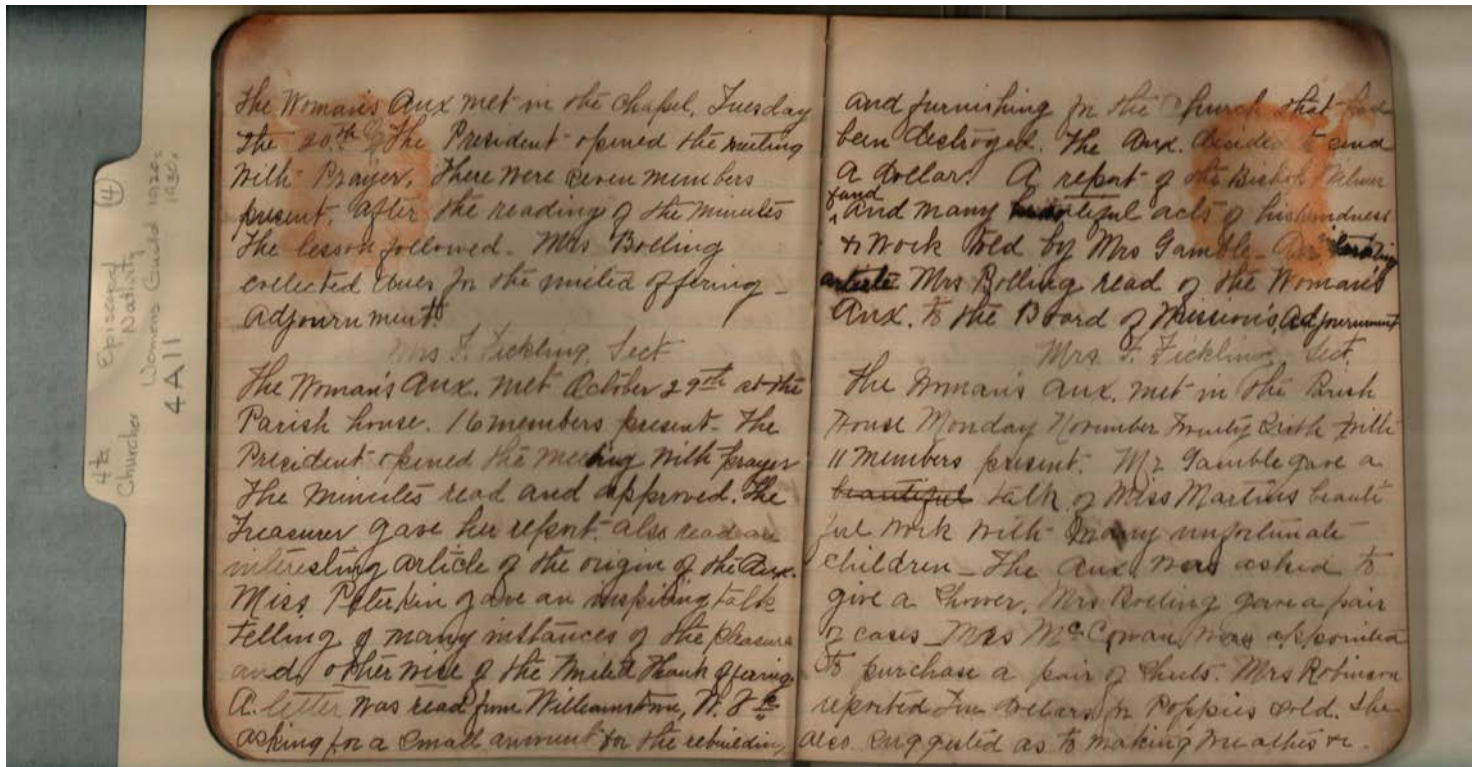 4A11
Womans Guild 1920s
1930s
Churches Nativity
4ts Episcopal ④
The Woman's Aux met in the Chapel, Tuesday
the 20th The President opened the meeting
with Prayer, There were seven members
present, after the reading of the minutes
the lesson followed. Mrs Bolling
collected dues for the united offering –
adjournment.
Mrs F. Fickling, Sect
The Woman's Aux. met October 29th at the
Parish house. 16 members present – The
President opened the meeting with prayer
The minutes read and approved. The
Treasurer gave her report. also read an
interesting article of the origin of the Aux.
Miss Peterkin gave an inspiring talk
telling of many instances of the pleasure
and otherwise of the United Thank offering.
A letter was read from Williamstown, W.
asking for a small amount for the rebuilding
and furnishing for the Church that had
been destroyed. The Aux. decided to send
a dollar. A report of the Bishop Wilmer
fund
and many beautiful acts of his kindness
& work told by Mrs Gamble – An interesting
article Mrs Bolling read of the Woman's
Aux. to the Board of Missions, Adjournment
Mrs F. Fickling, Sect,
The Woman's Aux. met in the Parish
House Monday November Twenty Sixth with
11 members present. Mr Gamble gave a
beautiful talk of Miss Martins beauti
ful work with many unfortunate
children – The Aux. was asked to
give a shower, Mrs Bolling gave a pair
of cases – Mrs McCowan was appointed
to purchase a pair of sheets. Mrs Robinson
reported Five Dollars for Poppies sold. She
also suggested as to making wreathes &c.